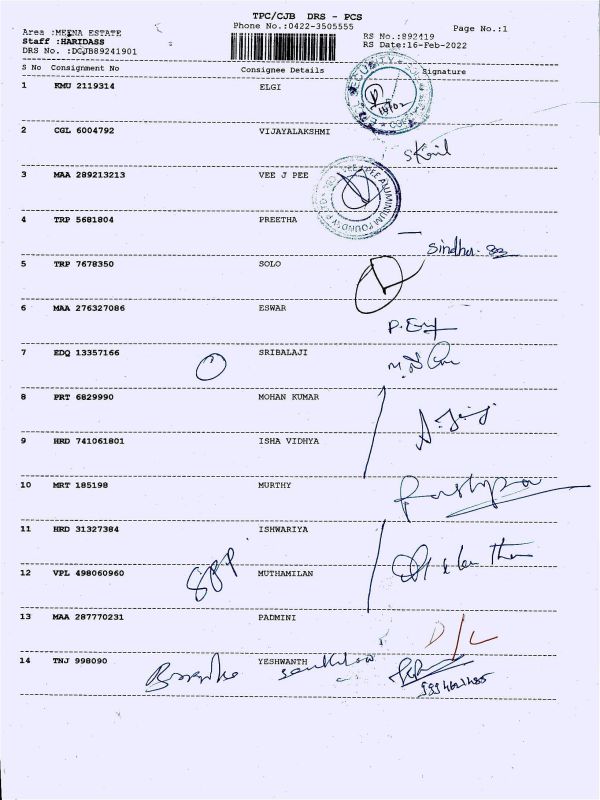 TPC/CJB DRS - PCS
Phone No.:0422-3505555
Page No.:1
Area :MEENA ESTATE
Staff :HARIDASS
DRS No. :DCJB89241901
RS No.:892419
RS Date:16-Feb-2022
S No Consignment No Consignee Details Signature
1 KMU 2119314 ELGI
SECURITY
16/02
2 CGL 6004792 VIJAYALAKSHMI
3 MAA 289213213 VEE J PEE
VEE JEE PEE ALUMINIUM FOUNDRY
4 TRP 5681804 PREETHA
Sindhu
5 TRP 7678350 SOLO
6 MAA 276327086 ESWAR
7 EDQ 13357166 SRIBALAJI
8 PRT 6829990 MOHAN KUMAR
9 HRD 741061801 ISHA VIDHYA
10 MRT 185198 MURTHY
11 HRD 31327384 ISHWARIYA
12 VPL 498060960 MUTHAMILAN
13 MAA 287770231 PADMINI
D/L
14 TNJ 998090 YESHWANTH